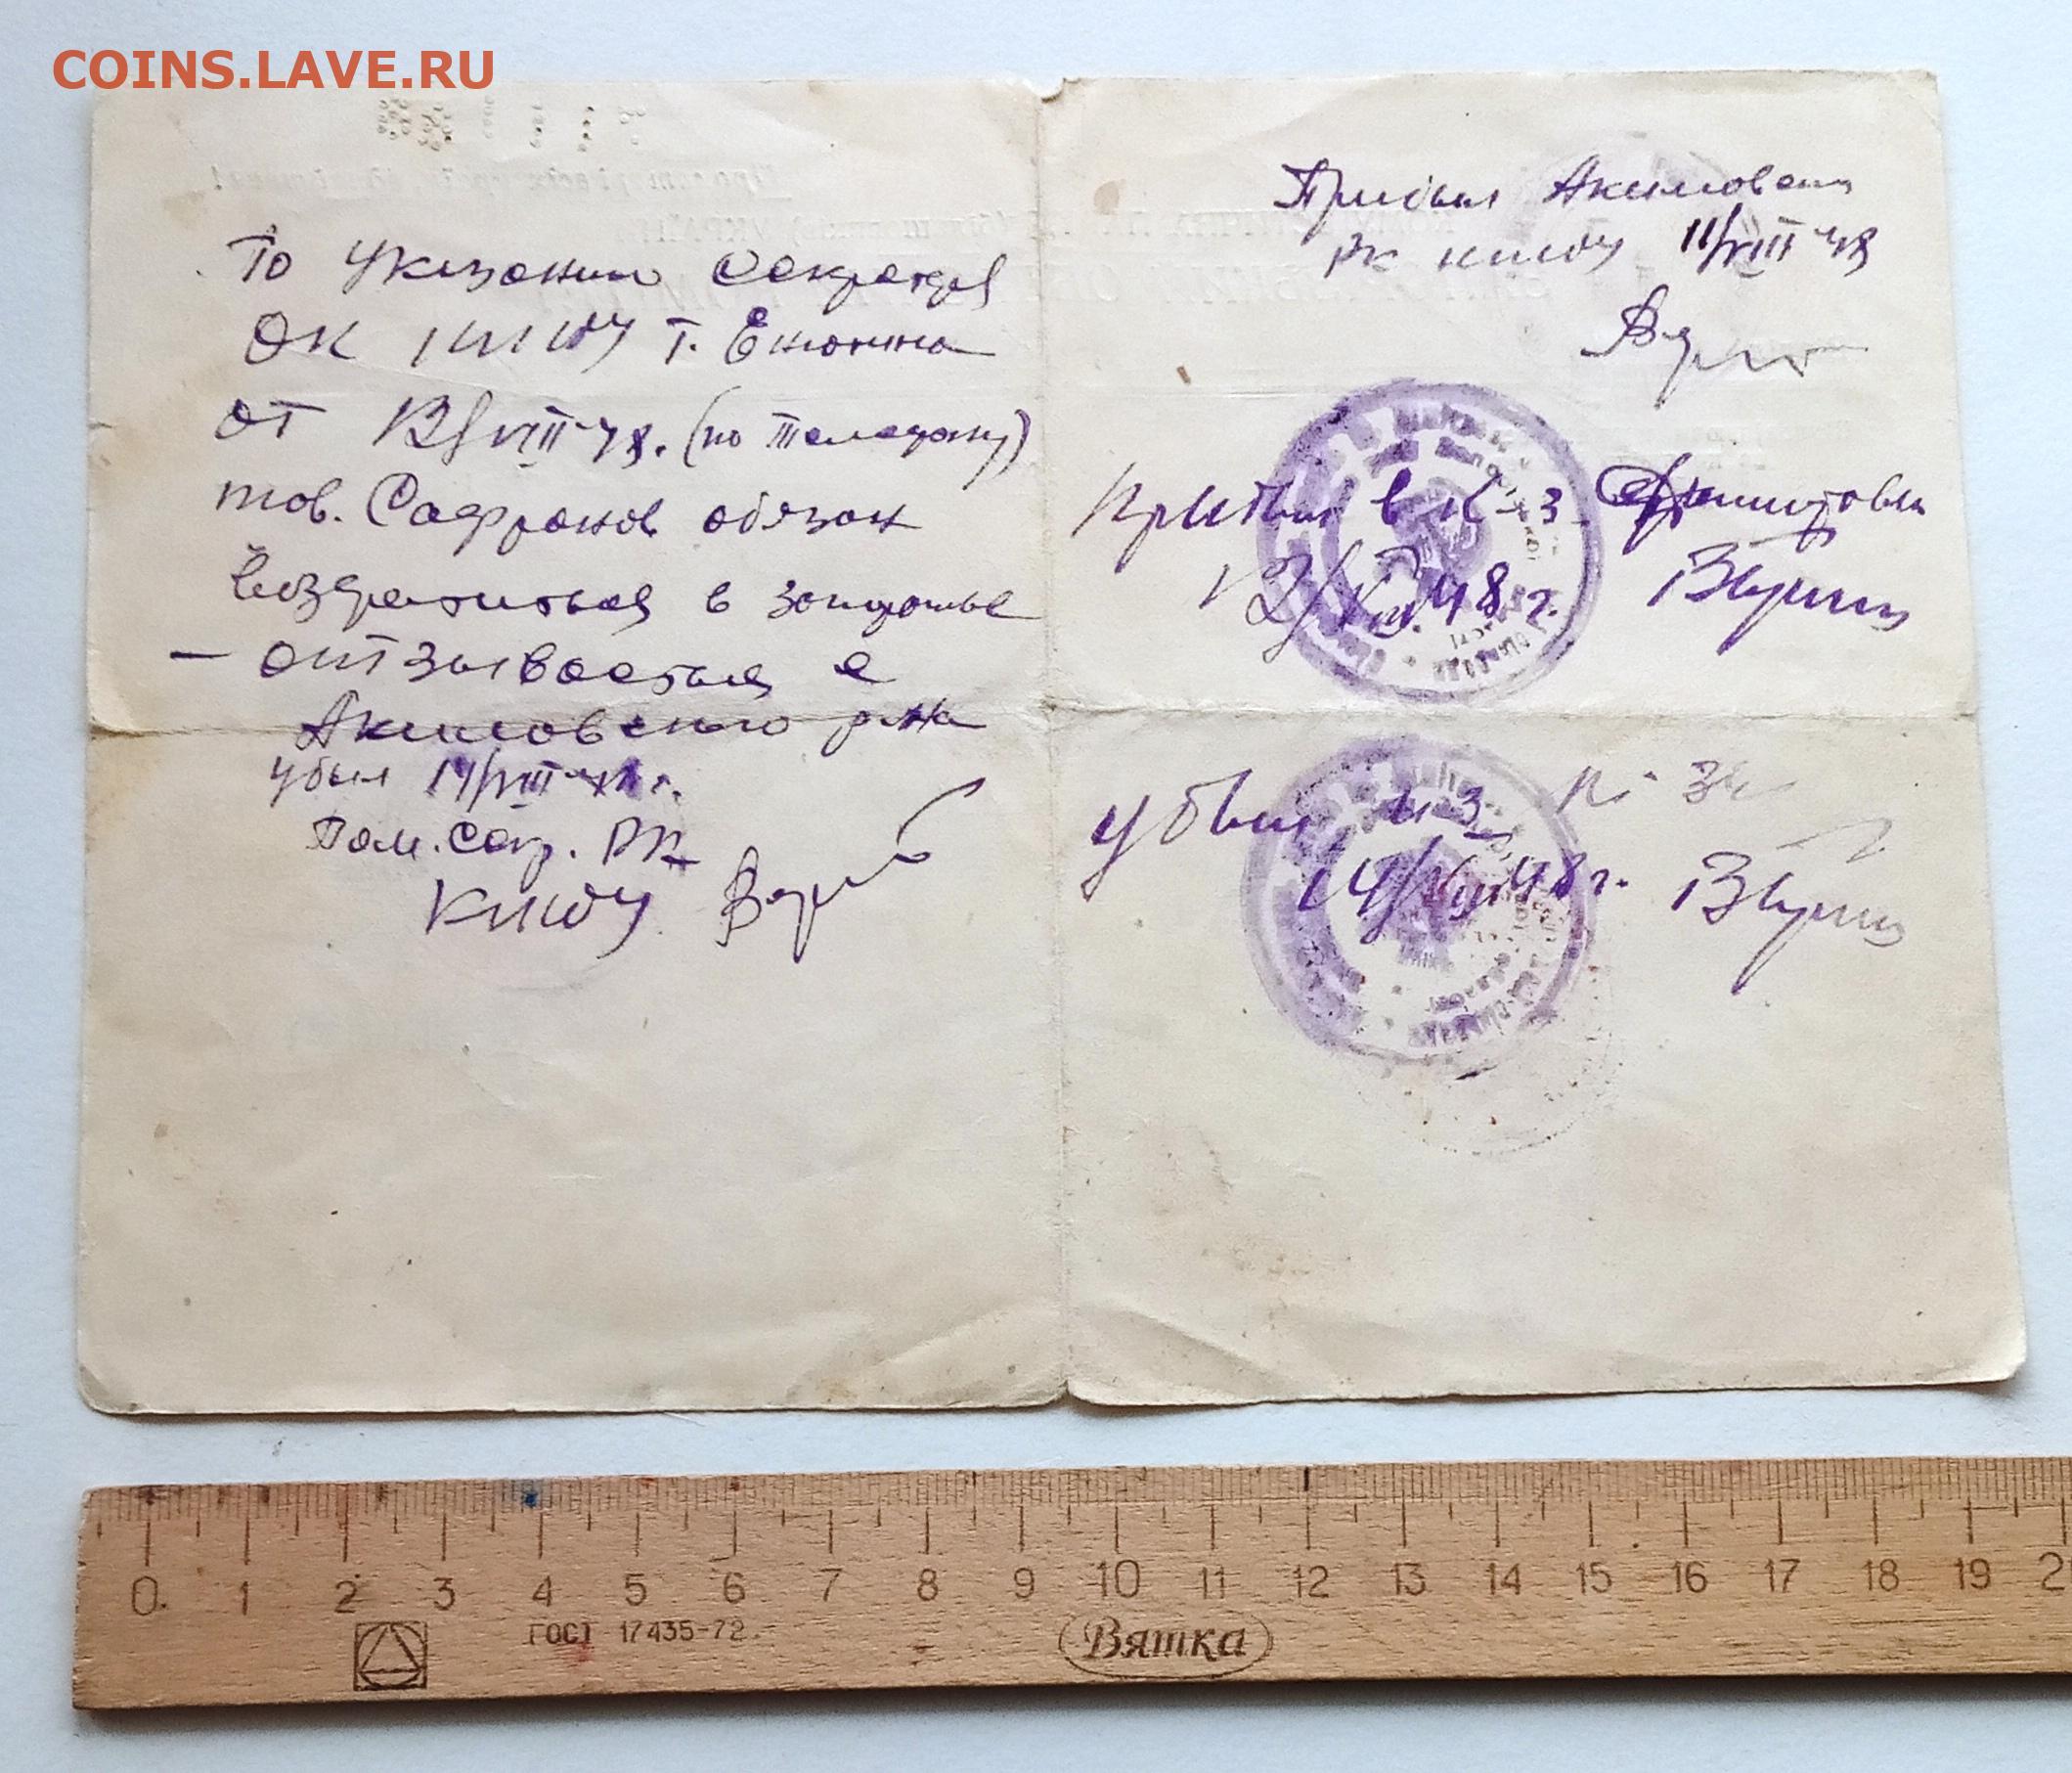 COINS.LAVE.RU
По указанию секретаря
ОК КП(б)У т. Енютина
от 13/VIII-48. (по телефону)
тов. Сафронов обязан
возвратиться в запорожье
— отзывается с
Акимовского р-на
убыл 14/VIII-48 г.
Пом. секр. РК
КП(б)У
Прибыл Акимовский
РК КП(б)У 11/VIII-48
Прибыл в к-з
12/VIII.48 г.
Убыл из к-за
14/VIII 48 г.
0 1 2 3 4 5 6 7 8 9 10 11 12 13 14 15 16 17 18 19 2
ГОСТ 17435-72
Вятка